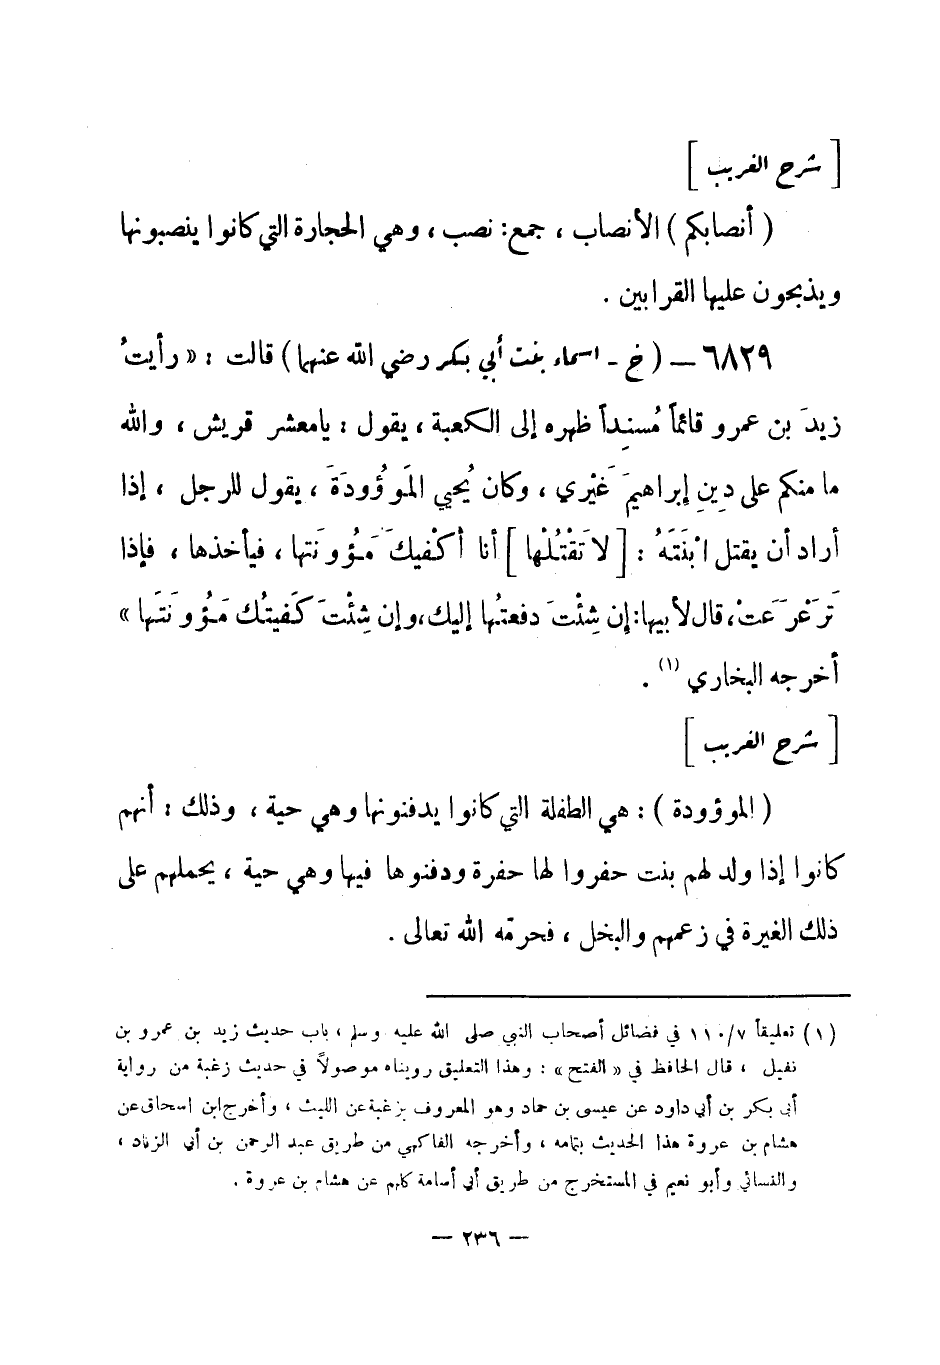 [ شرح الغريب ]
( أنصابكم ) الأنصاب ، جمع : نصب ، وهي الحجارة التي كانوا ينصبونها
ويذبحون عليها القرابين .
٦٨٢٩ — ( خ - اسماء بنت أبي بكر رضي الله عنهما ) قالت : « رأيتُ
زيدَ بن عمرو قائماً مُسنِداً ظهره إلى الكعبة ، يقول : يامعشر قريش ، والله
ما منكم على دينِ إبراهيمَ غَيْري ، وكان يُحيي المَوْؤُودَةَ ، يقول للرجل ، إذا
أراد أن يقتل ابْنَتَهُ : [ لا تَقْتُلْها ] أنا أكْفيكَ مَؤُونَتها ، فيأخذها ، فإذا
تَرَعْرَعَتْ، قال لأبيها: إن شِئْتَ دفعتُها إليك، وإن شِئْتَ كَفيتُك مَؤُونَتَها »
أخرجه البخاري (١) .
[ شرح الغريب ]
( الموؤودة ) : هي الطفلة التي كانوا يدفنونها وهي حية ، وذلك : أنهم
كانوا إذا ولد لهم بنت حفروا لها حفرة ودفنوها فيها وهي حية ، يحملهم على
ذلك الغيرة في زعمهم والبخل ، فحرمّه الله تعالى .
(١) تعليقاً ١١٠/٧ في فضائل أصحاب النبي صلى الله عليه وسلم ، باب حديث زيد بن عمرو بن
نفيل ، قال الحافظ في « الفتح » : وهذا التعليق رويناه موصولاً في حديث زغبة من رواية
أبي بكر بن أبي داود عن عيسى بن حماد وهو المعروف بزغبة عن الليث ، وأخرج ابن اسحاق عن
هشام بن عروة هذا الحديث بتمامه ، وأخرجه الفاكهي من طريق عبد الرحمن بن أبي الزناد ،
والنسائي وأبو نعيم في المستخرج من طريق أبي أسامة كلهم عن هشام بن عروة .
— ٢٣٦ —